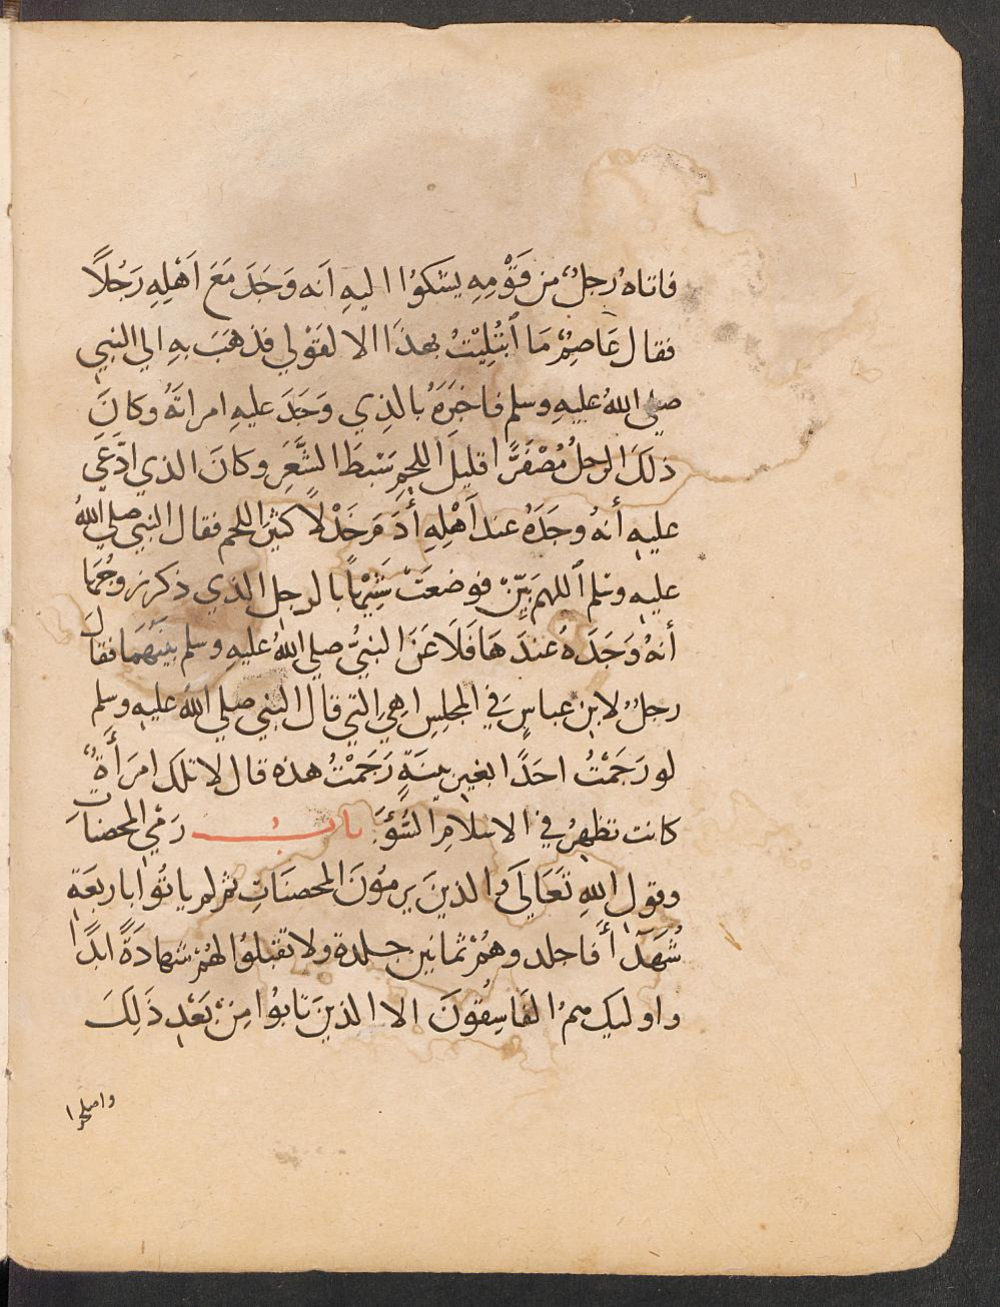 فاتاه رجلٌ من قَوْمِهِ يشكوُا اليهِ اَنه وَجَدَ مَعَ اَهْلِهِ رَجُلاً
فقال عَاصِمٌ مَا ٱبْتُلِيْتُ بهذَا الا لقَوْلي فذهَبَ بهِ الي النبيِ
صلى اللهُ عليهِ وسلم فاخبَرَهُ بالذِي وَجَدَ عليهِ امراتَهُ وكانَ
ذلكَ الرجلُ مُصْفَرًّا قليلَ اللحمِ سَبْطَ الشَّعَرِ وكانَ الذي ادَّعَي
عليهِ أنهُ وجَدَهُ عند اَهْلِهِ أدَمَ خَدْلاً كثيرَ اللحم فقال النبي صلي اللهُ
عليهِ وسلم ٱللهم بَيِّنْ فوضعَتْ شَبِيْهاً بالرجلِ الذي ذكر زوجُها
أنهُ وَجَدَهُ عندَ هَا فَلَاعَنَ النبيُّ صلي اللهُ عليهِ وسلم بينَهُمَا فقالَ
رجلٌ لابنِ عباسٍ في المجلِسِ اهِيَ التي قال النبي صلي الله عليهِ وسلم
لو رَجَمْتُ احَدًا بغيرِ بينَةٍ رَجَمْتُ هذه قال لا تلك امرَأَةٌ
كانت تظهِرُ في الاسلامِ السُّوْءَ بابُ رَمْيِ المحصناتِ
وقولِ اللهِ تَعَالَي والذينَ يرمُونَ المحصنَاتِ ثم لم ياتُوا باربعَةِ
شُهَدَآ أَ فاجلدوهُمْ ثمانين جلدة ولا تقبلُوا لهُمْ شهادَةً ابدًا
واوليك همُ الفَاسِقُونَ الا الذينَ تابُوا مِنْ بَعْدِ ذَلِكَ
واصلحوا